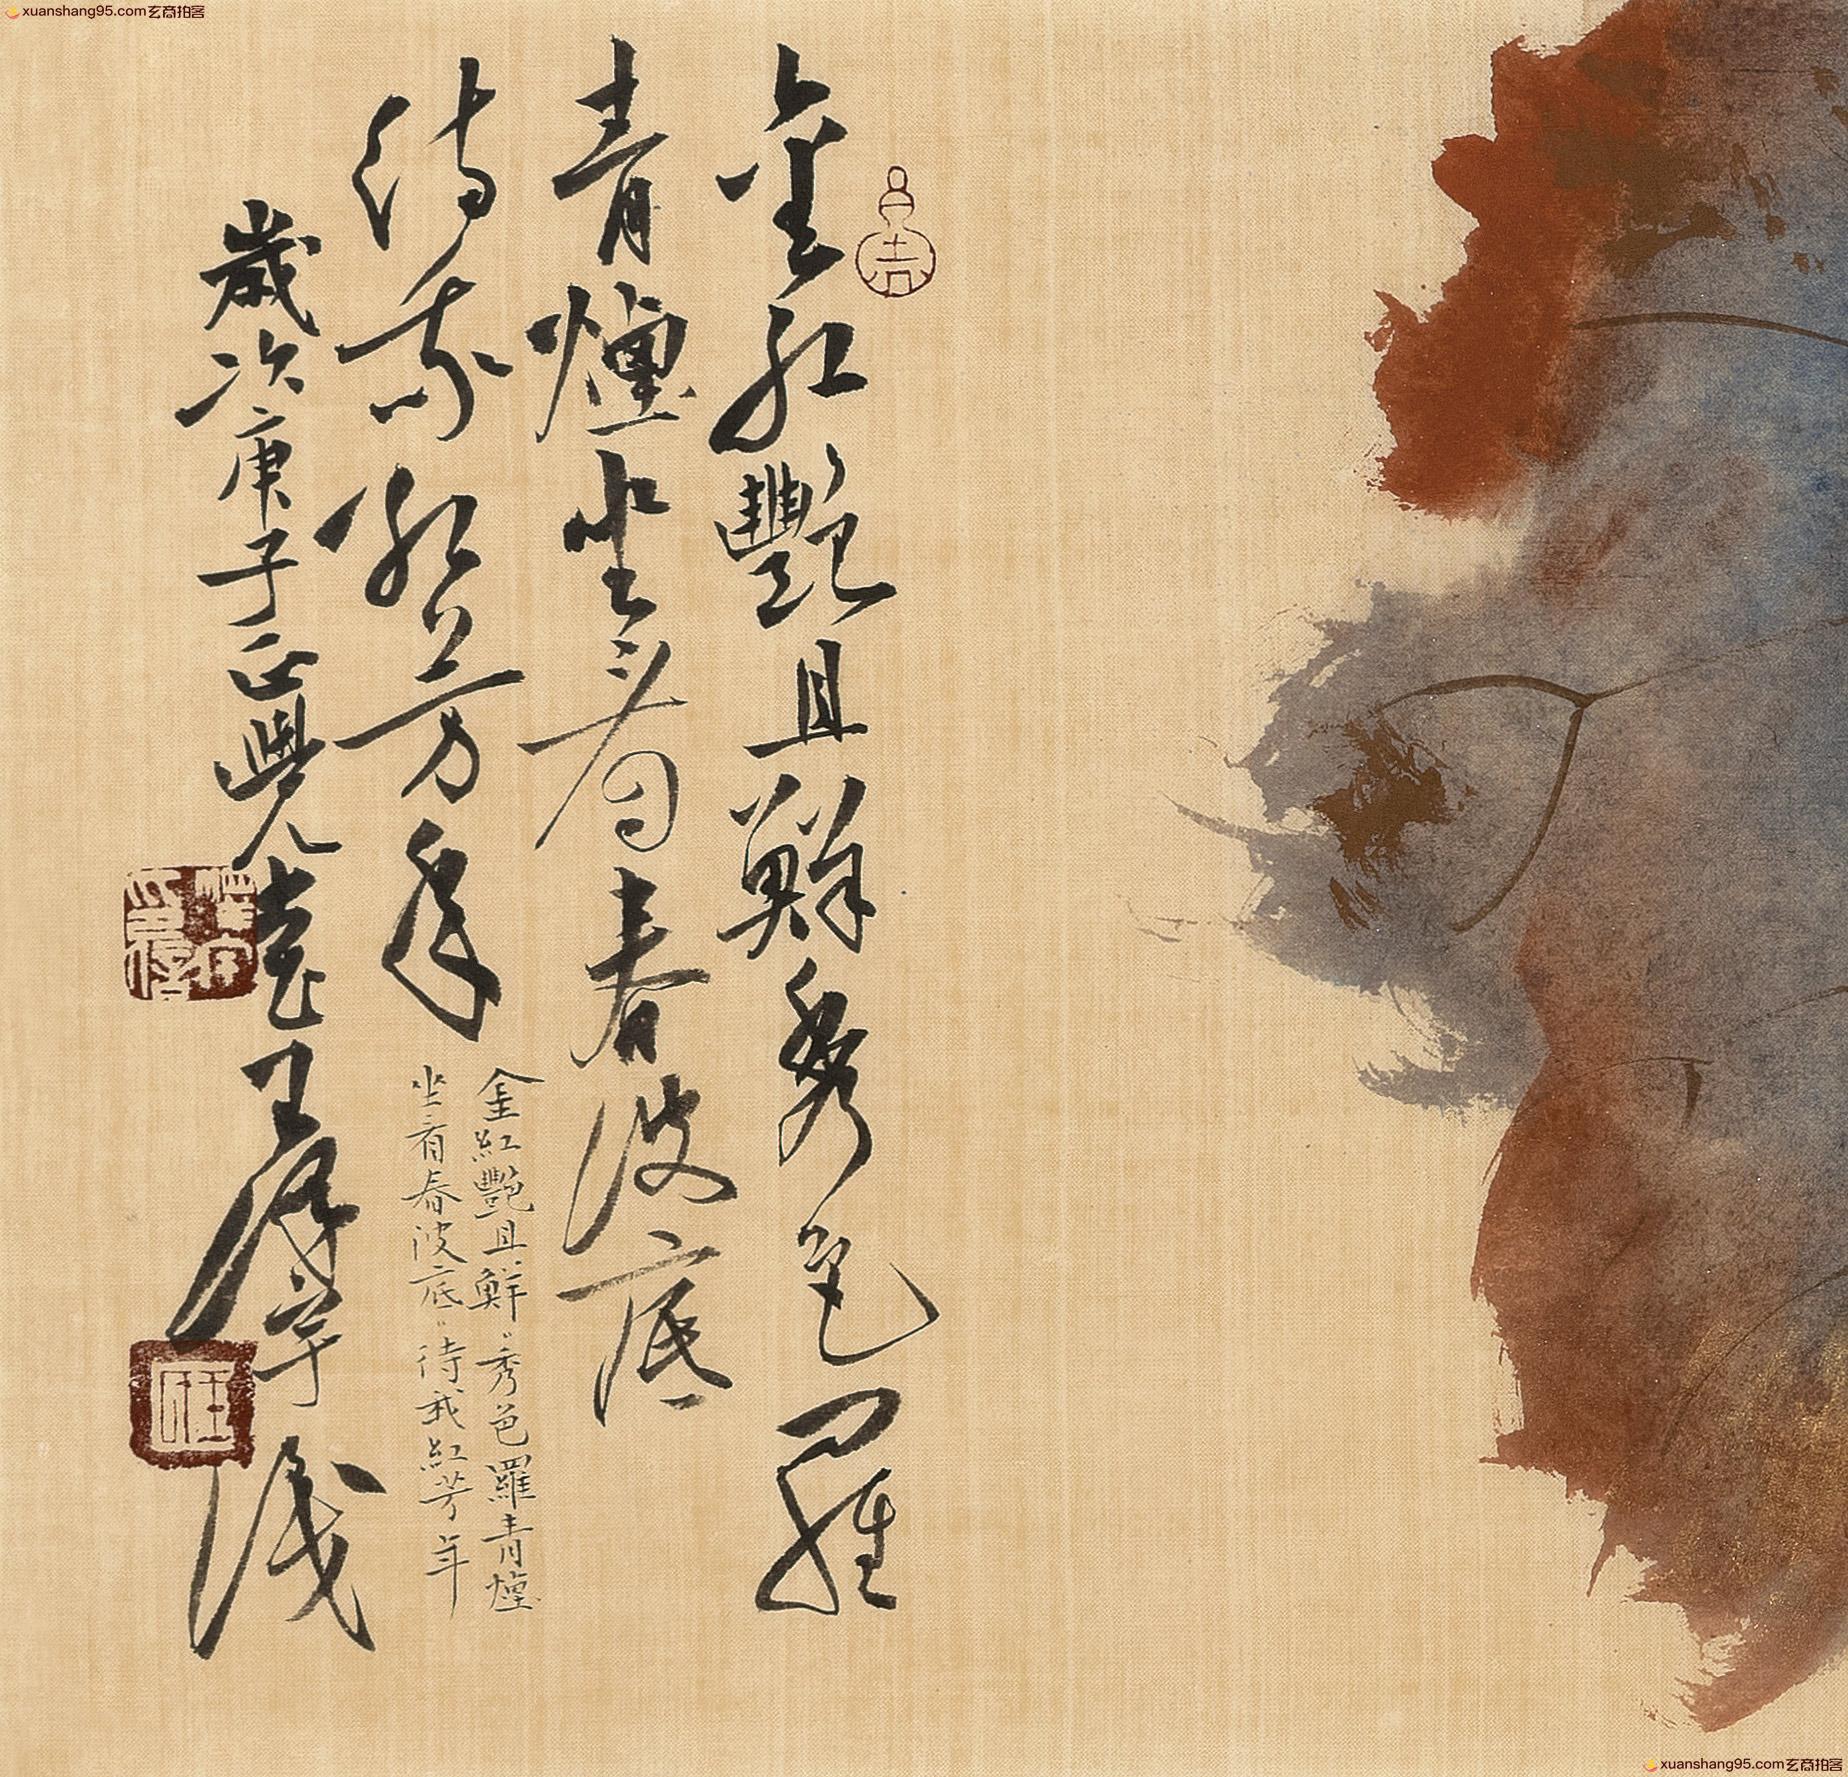 xuanshang95.com玄商拍客
金紅艷且鮮秀色羅
青煙坐看春波底
待我紅芳年
金紅艷且鮮〃秀色羅青煙
坐看春波底〃待我紅芳年
歲次庚子正覺壹
吉
xuanshang95.com玄商拍客